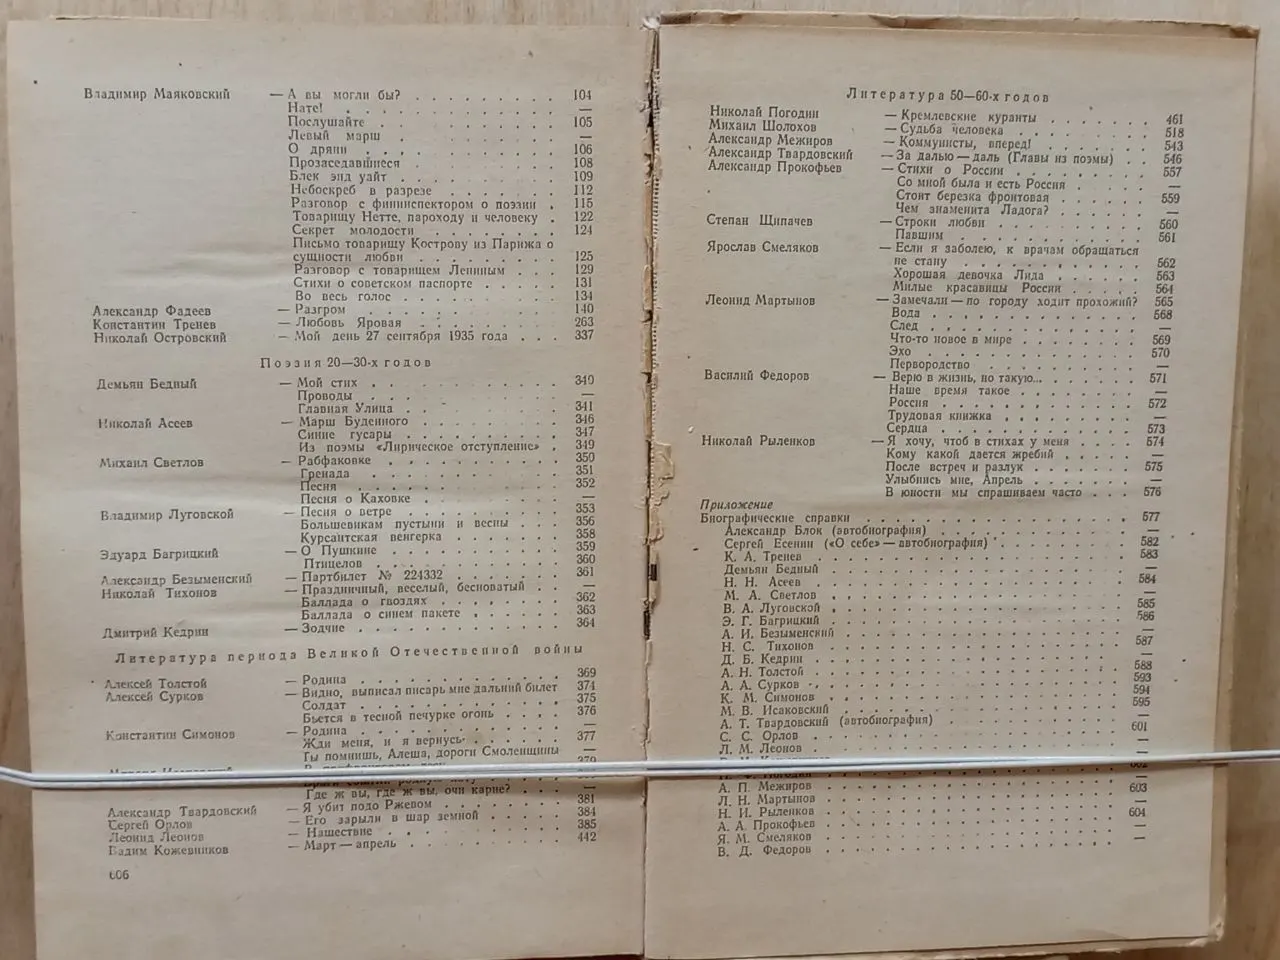 Владимир Маяковский — А вы могли бы? . . . 104
Нате! . . . —
Послушайте . . . 105
Левый марш . . . —
О дряни . . . 106
Прозаседавшиеся . . . 108
Блек энд уайт . . . 109
Небоскреб в разрезе . . . 112
Разговор с фининспектором о поэзии . 115
Товарищу Нетте, пароходу и человеку . 122
Секрет молодости . . . 124
Письмо товарищу Кострову из Парижа о
сущности любви . . . 125
Разговор с товарищем Лениным . . . 129
Стихи о советском паспорте . . . 131
Во весь голос . . . 134
Александр Фадеев — Разгром . . . 140
Константин Тренев — Любовь Яровая . . . 263
Николай Островский — Мой день 27 сентября 1935 года . . . 337
Поэзия 20—30-х годов
Демьян Бедный — Мой стих . . . 340
Проводы . . . —
Главная Улица . . . 341
Николай Асеев — Марш Буденного . . . 346
Синие гусары . . . 347
Из поэмы «Лирическое отступление» . 349
Михаил Светлов — Рабфаковке . . . 350
Гренада . . . 351
Песня . . . 352
Песня о Каховке . . . —
Владимир Луговской — Песня о ветре . . . 353
Большевикам пустыни и весны . . . 356
Курсантская венгерка . . . 358
Эдуард Багрицкий — О Пушкине . . . 359
Птицелов . . . 360
Александр Безыменский — Партбилет № 224332 . . . 361
Николай Тихонов — Праздничный, веселый, бесноватый . . —
Баллада о гвоздях . . . 362
Баллада о синем пакете . . . 363
Дмитрий Кедрин — Зодчие . . . 364
Литература периода Великой Отечественной войны
Алексей Толстой — Родина . . . 369
Алексей Сурков — Видно, выписал писарь мне дальний билет 374
Солдат . . . 375
Бьется в тесной печурке огонь . . . 376
Константин Симонов — Родина . . . —
Жди меня, и я вернусь . . . 377
Ты помнишь, Алеша, дороги Смоленщины —
Где ж вы, где ж вы, очи карие? . . . 381
Александр Твардовский — Я убит подо Ржевом . . . 384
Сергей Орлов — Его зарыли в шар земной . . . 385
Леонид Леонов — Нашествие . . . 442
Вадим Кожевников — Март — апрель . . .
606
Литература 50—60-х годов
Николай Погодин — Кремлевские куранты . . . 461
Михаил Шолохов — Судьба человека . . . 518
Александр Межиров — Коммунисты, вперед! . . . 543
Александр Твардовский — За далью — даль (Главы из поэмы) . . 546
Александр Прокофьев — Стихи о России . . . 557
Со мной была и есть Россия . . . —
Стоит березка фронтовая . . . 559
Чем знаменита Ладога? . . . —
Степан Щипачев — Строки любви . . . 560
Павшим . . . 561
Ярослав Смеляков — Если я заболею, к врачам обращаться
не стану . . . 562
Хорошая девочка Лида . . . 563
Милые красавицы России . . . 564
Леонид Мартынов — Замечали — по городу ходит прохожий? 565
Вода . . . 568
След . . . —
Что-то новое в мире . . . 569
Эхо . . . 570
Первородство . . . —
Василий Федоров — Верю в жизнь, но такую... . . . 571
Наше время такое . . . —
Россия . . . 572
Трудовая книжка . . . —
Сердца . . . 573
Николай Рыленков — Я хочу, чтоб в стихах у меня . . . 574
Кому какой дается жребий . . . —
После встреч и разлук . . . 575
Улыбнись мне, Апрель . . . —
В юности мы спрашиваем часто . . . 576
Приложение
Биографические справки . . . 577
Александр Блок (автобиография) . . . —
Сергей Есенин («О себе» — автобиография) . . . 582
К. А. Тренев . . . 583
Демьян Бедный . . . —
Н. Н. Асеев . . . 584
М. А. Светлов . . . —
В. А. Луговской . . . 585
Э. Г. Багрицкий . . . 586
А. И. Безыменский . . . —
Н. С. Тихонов . . . 587
Д. Б. Кедрин . . . —
А. Н. Толстой . . . 588
А. А. Сурков . . . 593
К. М. Симонов . . . 594
М. В. Исаковский . . . 595
А. Т. Твардовский (автобиография) . . . —
С. С. Орлов . . . 601
Л. М. Леонов . . . —
А. П. Межиров . . . 603
Л. Н. Мартынов . . . —
Н. И. Рыленков . . . 604
А. А. Прокофьев . . . —
Я. М. Смеляков . . . —
В. Д. Федоров . . .